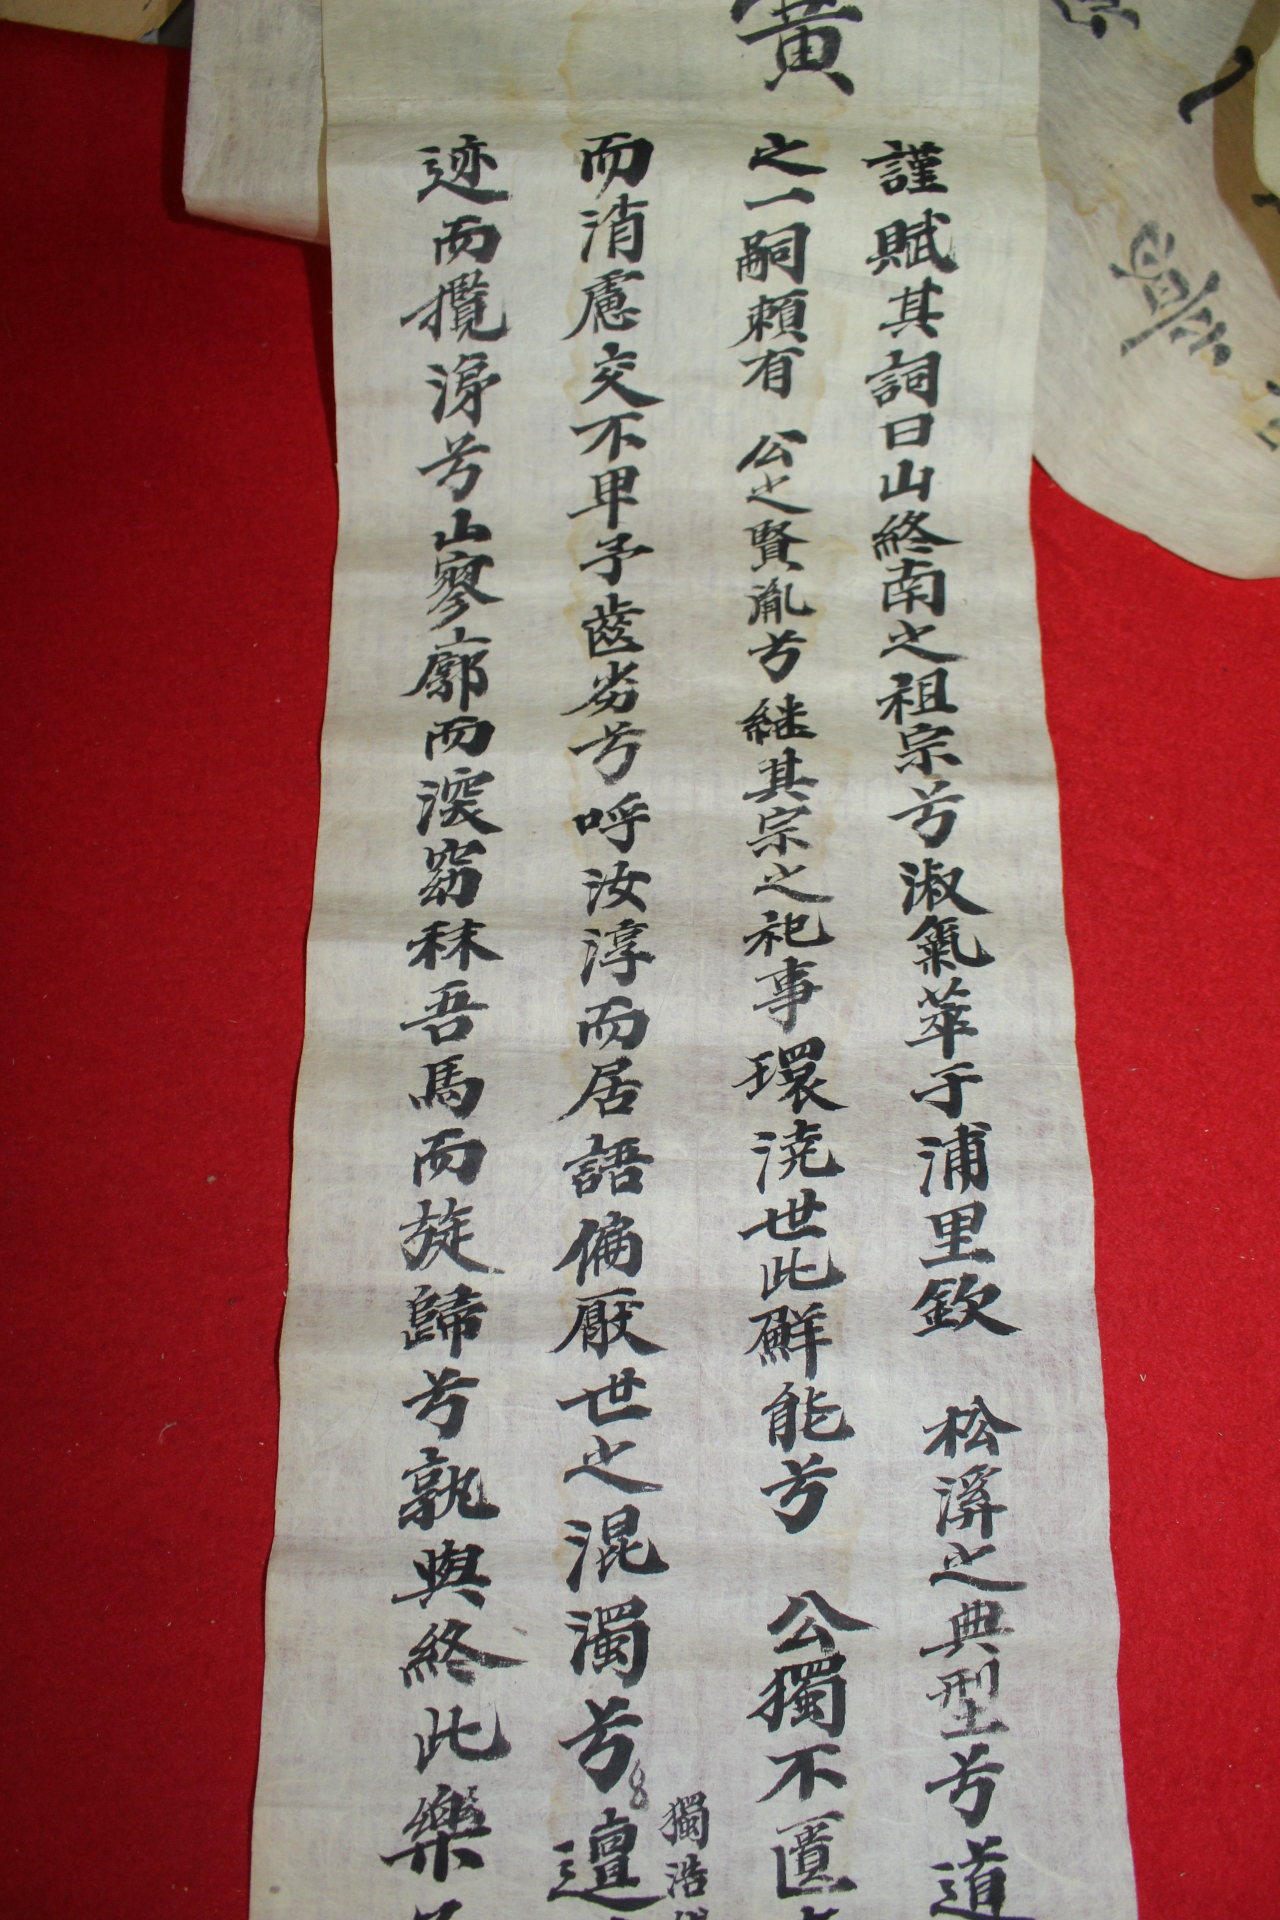 黃
謹賦其詞曰山終南之祖宗兮淑氣萃于浦里欽 松溪之典型兮道
之一嗣賴有 公之賢胤兮継其宗之祀事環澆世此鮮能兮 公獨不匱
而消慮交不甲予齒劣兮呼汝淳而居語偏厭世之混濁兮邅
獨浩
迹而攬涕兮山寥廓而深窈秣吾馬而旋歸兮孰與終此樂